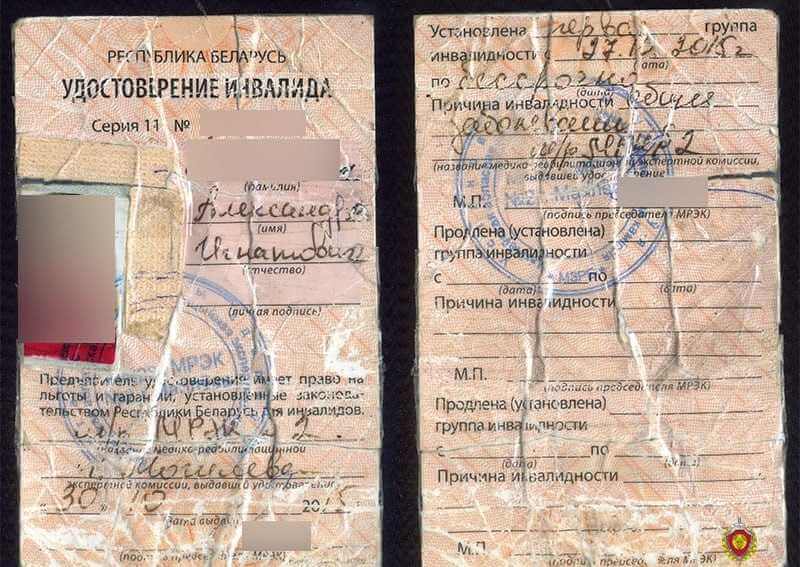 РЕСПУБЛИКА БЕЛАРУСЬ
УДОСТОВЕРЕНИЕ ИНВАЛИДА
Серия 11 №
(фамилия)
Александр
(имя)
Игнатович
(отчество)
(личная подпись)
МРЭК
Предъявитель удостоверения имеет право на
льготы и гарантии, установленные законода-
тельством Республики Беларусь для инвалидов.
МРЭК 2
(название медико-реабилитационной
г. Могилева
экспертной комиссии, выдавшей удостоверение)
"30" 10 2015
(дата выдачи)
(подпись председателя МРЭК)
Установлена первая группа
инвалидности с 27.10.2015г
(дата)
по бессрочно
(дата)
Причина инвалидности общее
заболевание
МРЭК 2
(название медико-реабилитационной экспертной комиссии,
выдавшей удостоверение
М.П.
(подпись председателя МРЭК)
Продлена (установлена)
группа инвалидности
с по
(дата) (дата)
Причина инвалидности
М.П.
(подпись председателя МРЭК)
Продлена (установлена)
группа инвалидности
с по
(дата) (дата)
Причина инвалидности
М.П.
(подпись председателя МРЭК)